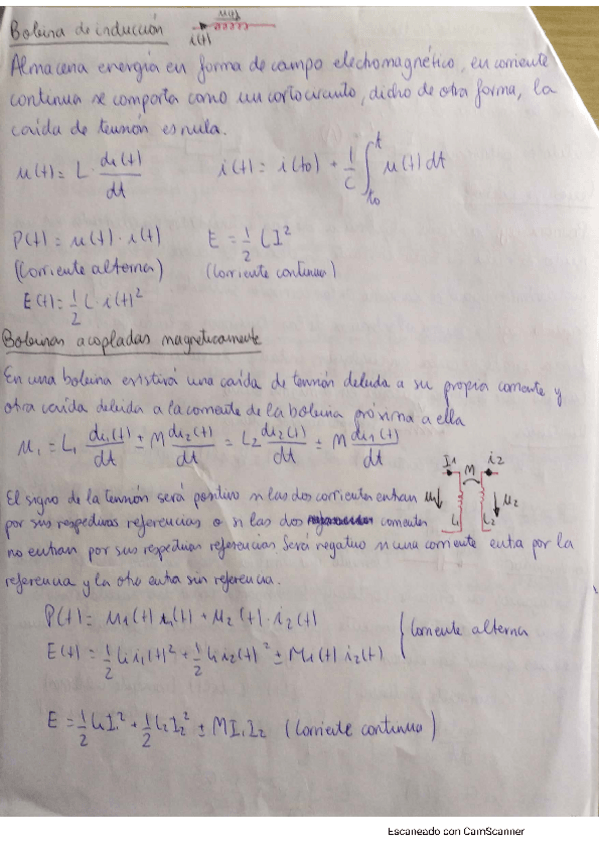 Bobina de inducción u(t)
i(t)
Almacena energía en forma de campo electromagnético, en corriente
continua se comporta como un cortocircuito, dicho de otra forma, la
caída de tensión es nula.
u(t) = L · di(t)/dt i(t) = i(t0) + 1/C ∫_{t0}^{t} u(t) dt
P(t) = u(t) · i(t) E = 1/2 L I²
(Corriente alterna) (Corriente continua)
E(t) = 1/2 L i(t)²
Bobinas acopladas magnéticamente
En una bobina existirá una caída de tensión debida a su propia corriente y
otra caída debida a la corriente de la bobina próxima a ella
u1 = L1 di1(t)/dt ± M di2(t)/dt = L2 di2(t)/dt ± M di1(t)/dt
I1 M i2
El signo de la tensión será positivo si las dos corrientes entran u1 u2
por sus respectivas referencias o si las dos corrientes L1 L2
no entran por sus respectivas referencias. Será negativo si una corriente entra por la
referencia y la otra entra sin referencia.
P(t) = u1(t) i1(t) + u2(t) · i2(t)
E(t) = 1/2 L1 i1(t)² + 1/2 L2 i2(t)² ± M i1(t) i2(t) Corriente alterna
E = 1/2 L1 I1² + 1/2 L2 I2² ± M I1 I2 (Corriente continua)
Escaneado con CamScanner